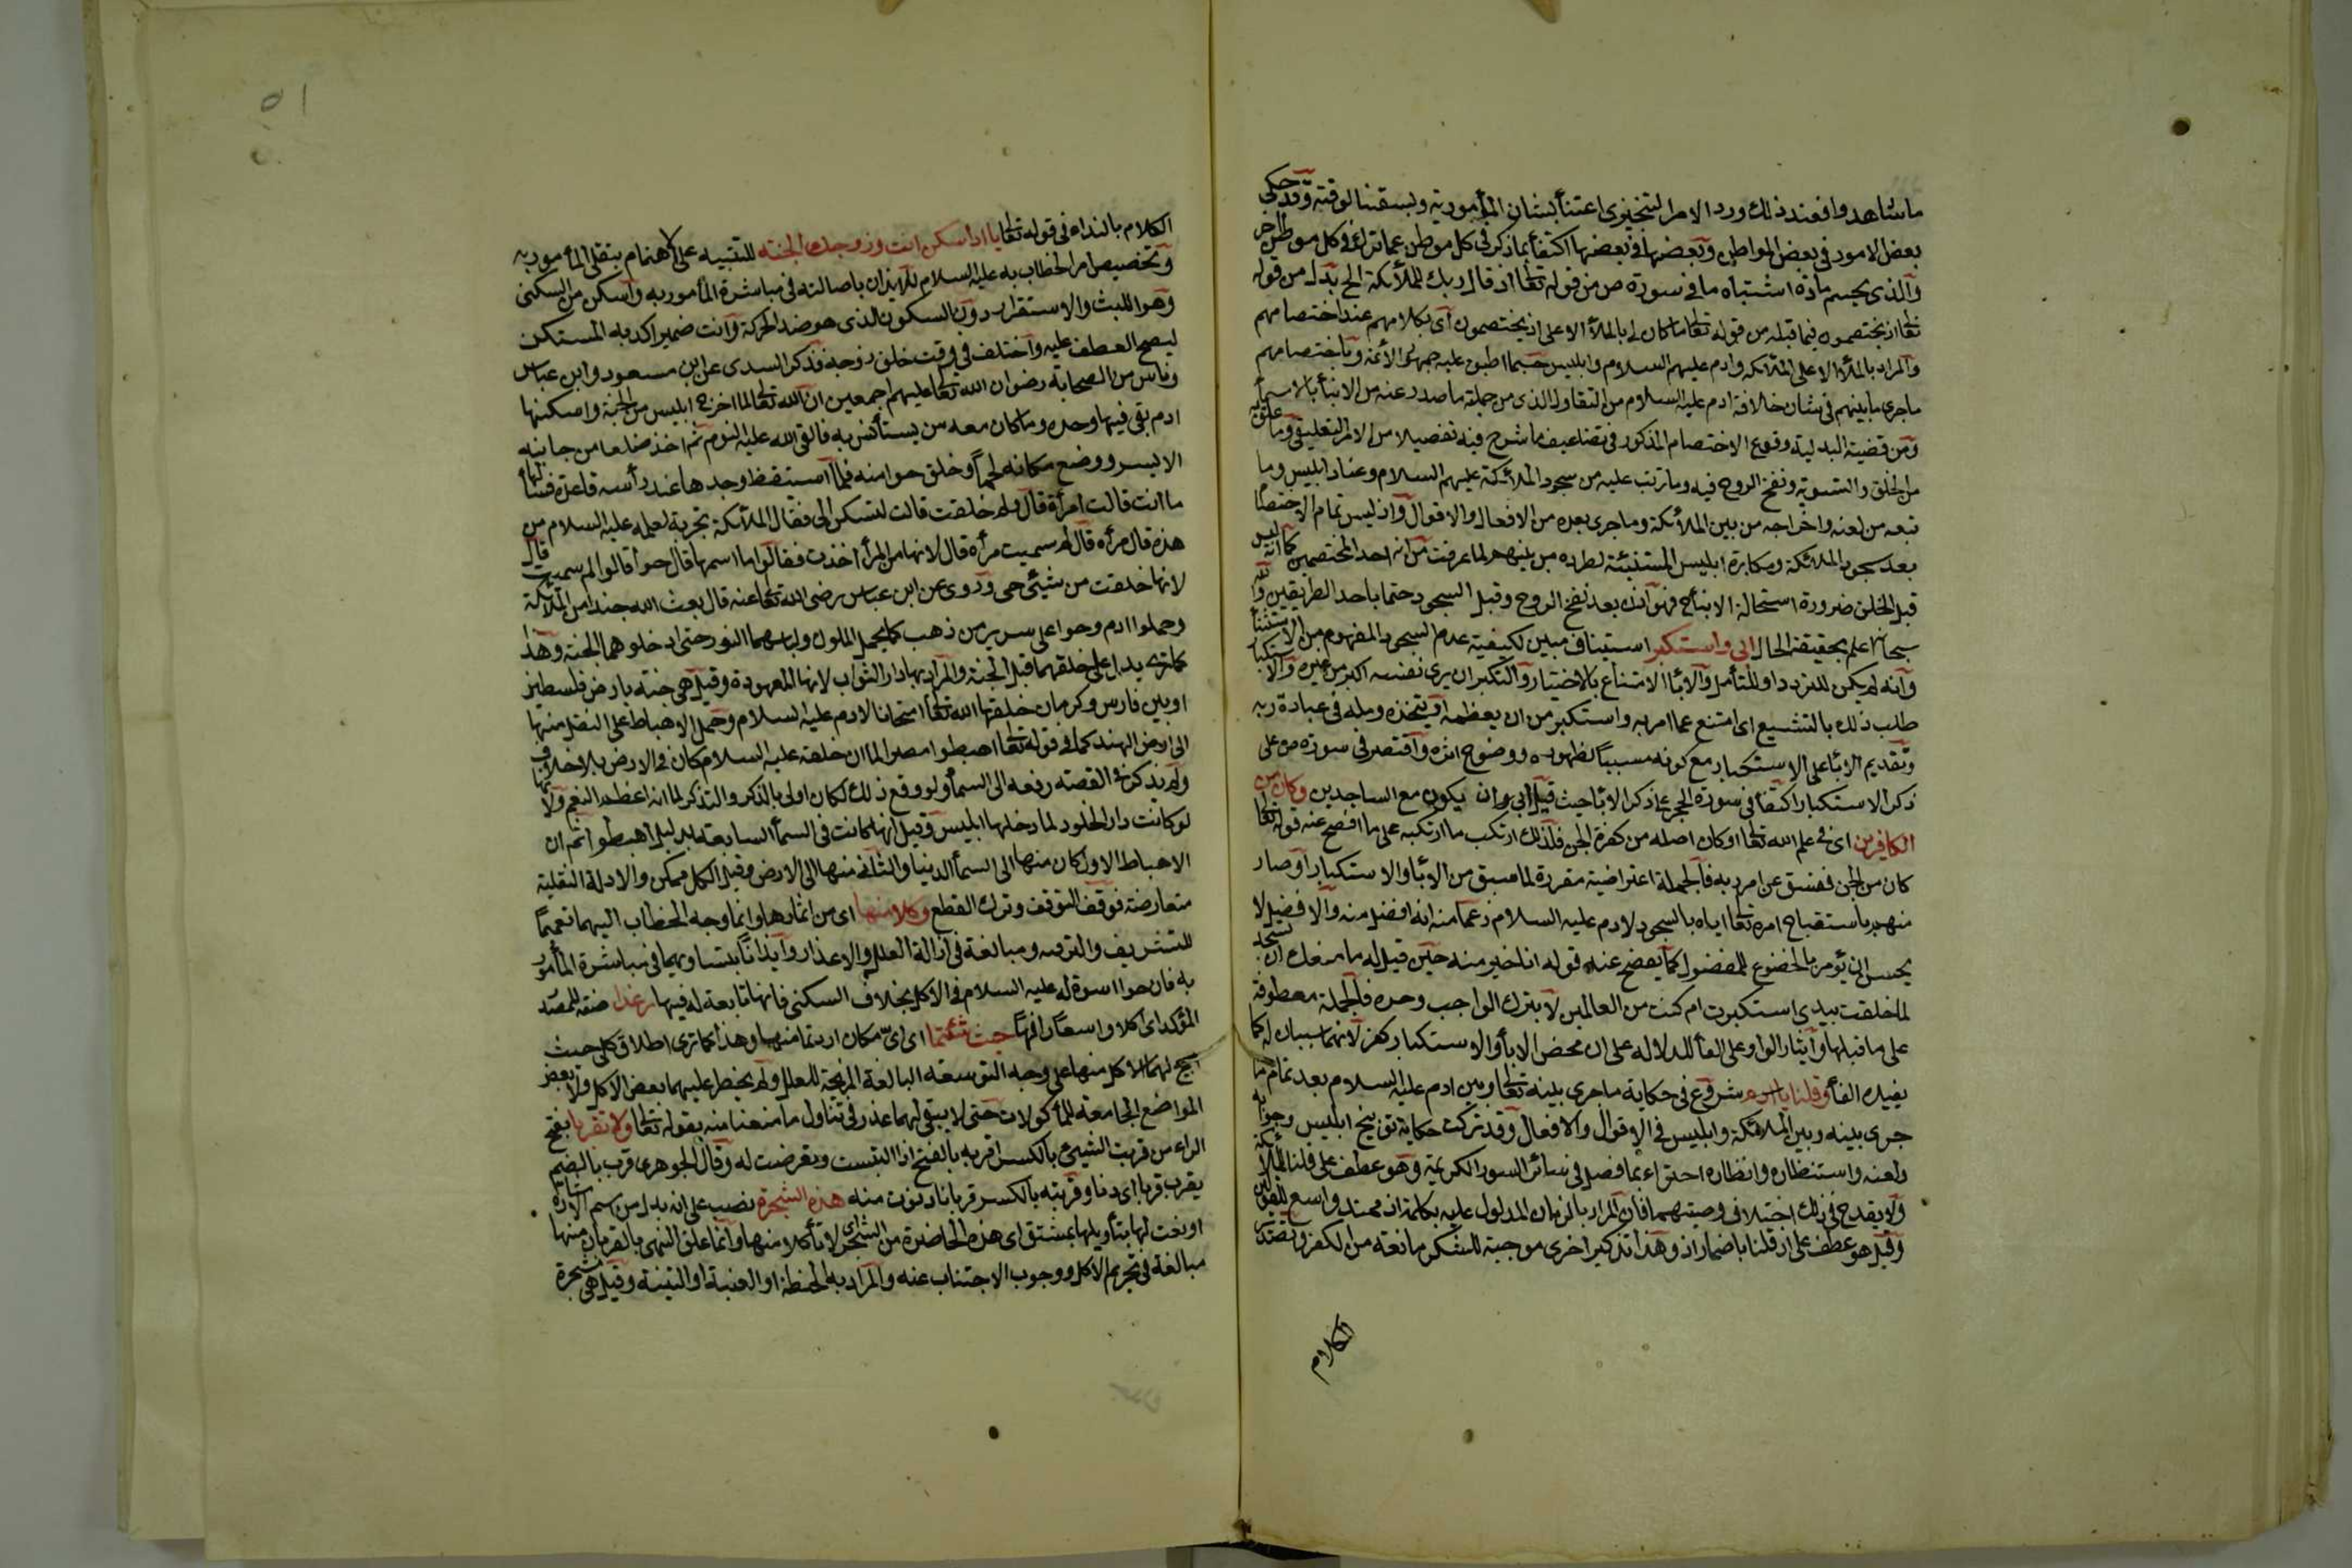 ما شاهدوا فعند ذلك ورد الامر التنجيزى اعتنأ بشان المأمور به وبسقنا لوقته وقد حكى
بعض الامور فى بعض المواطن وبعضها فى بعضها اكتفأ بما ذكر فى كل موطن عما ترك فى كل موطن اخر
والذى يحسم مادة اشتباه ما فى سورة ص من قوله تعالى اذ قال ربك للملائكة الخ بدل من قوله
تعالى اذ يختصمون فيما قبله من قوله تعالى ما كان لى بالملأ الاعلى اذ يختصمون اى بكلامهم عند اختصامهم
والمراد بالملأ الاعلى الملائكه وادم عليهم السلام وابليس حسبما اطبق عليه جمهور الأئمة وباختصامهم
ما جرى ما بينهم فى شان خلافة ادم عليه السلام من التقاول الذى من جملته ما صدر عنه من الانبأ بالاسمأ
ومن قضية البدلية وقوع الاختصام المذكور فى تضاعيف ما شرح فيه تفصيلا من الامر التعليقى وما علق به
من الخلق والتسوية ونفخ الروح فيه وما ترتب عليه من سجود الملائكة عليهم السلام وعناد ابليس وما
تبعه من لعنه واخراجه من بين الملائكة وما جرى بعده من الافعال والاقوال واذ ليس تمام الاختصام
بعد سجود الملائكة ومكابرة ابليس المستتبعة لطرده من بينهم لما عرفت من انه احد المختصمين كما انه ليس
قبل الخلق ضرورة استحالة الانبأ فهو اذن بعد نفخ الروح وقبل السجود حتما باحد الطريقين والله
سبحانه اعلم بحقيقة الحال ابى واستكبر استيناف مبين لكيفية عدم السجود المفهوم من الاستثنأ
وانه لم يكن للتردد او للتأمل والابأ الامتناع بالاختيار والتكبر ان يرى نفسه اكبر من غيره والاستكبار
طلب ذلك بالتشبع اى امتنع عما امر به واستكبر من ان يعظمه او يتخذه وصلة فى عبادة ربه
وتقديم الابأ على الاستكبار مع كونه مسببا لظهوره ووضوح اثره واقتصر فى سورة ص على
ذكر الاستكبار اكتفأ وفى سورة الحجر على ذكر الابأ حيث قيل ابى ان يكون مع الساجدين وكان من
الكافرين اى فى علم الله تعالى او كان اصله من كفرة الجن فلذلك ارتكب ما ارتكبه على ما افصح عنه قوله تعالى
كان من الجن ففسق عن امر ربه فالجملة اعتراضية مقررة لما سبق من الابأ والاستكبار او صار
منهم باستقباح امره تعالى اياه بالسجود لادم عليه السلام زعما منه انه افضل منه والافضل لا
يحسن ان يؤمر بالخضوع للمفضول كما يفصح عنه قوله انا خير منه حين قيل له ما منعك ان تسجد
لما خلقت بيدى استكبرت ام كنت من العالين لا بترك الواجب وحده فالجملة معطوفة
على ما قبلها وايثار الواو على الفأ للدلاله على ان محض الابأ والاستكبار كفر لا انهما سببان له كما
يفيده الفأ وقلنا يا ادم شروع فى حكاية ما جرى بينه تعالى وبين ادم عليه السلام بعد تمام ما
جرى بينه وبين الملائكة وابليس فى الاقوال والافعال وقد تركت حكاية توبيخ ابليس وجوابه
ولعنه واستنظاره وانظاره اجتزاء بما فصل فى سائر السور الكريمة وهو عطف على قلنا للملائكة
ولا يقدح فى ذلك اختلاف وصيتهما فان المراد بالزمان المدلول عليه بكلمة اذ ممتد واسع للقولين
وقيل هو عطف على اذ قلنا باضمار اذ وهذا تذكير اخرى موجبة للشكر مانعة من الكفر وتصدير
الكلام
الكلام بالنداء فى قوله تعالى يا ادم اسكن انت وزوجك الجنه للتنبيه على الاهتمام بتلقى المأمور به
وتخصيص امر الخطاب به عليه السلام للايذان باصالته فى مباشرة المأمور به واسكن من السكنى
وهو اللبث والاستقرار دون السكون الذى هو ضد الحركة وانت ضمير اكد به المستكن
ليصح العطف عليه واختلف فى وقت خلق زوجه فذكر السدى عن ابن مسعود وابن عباس
وناس من الصحابة رضوان الله تعالى عليهم اجمعين ان الله تعالى لما اخرج ابليس من الجنة واسكنها
ادم بقى فيها وحده وما كان معه من يستأنس به فالقى الله عليه النوم ثم اخذ ضلعا من جانبه
الايسر ووضع مكانه لحما وخلق حوا منه فلما استيقظ وجدها عند رأسه قاعدة فسألها
ما انت قالت امرأة قال ولم خلقت قالت لتسكن الى فقال الملائكة تجربة لعلمه عليه السلام من
هذه قال مرأه قال لم سميت مرأة قال لانها من المرأ اخذت فقالوا ما اسمها قال حوأ قالوا لم سميت قال
لانها خلقت من شيئ حى وروى عن ابن عباس رضى الله تعالى عنه قال بعث الله جندا من الملائكة
وحملوا ادم وحوا على سرير من ذهب كما يحمل الملوك ولباسهما النور حتى ادخلوهما الجنة وهذا
كما ترى يدل على خلقهما قبل الجنة والمراد بها دار الثواب لانها المعهودة وقيل هى جنة بارض فلسطين
او بين فارس وكرمان خلقها الله تعالى امتحانا لادم عليه السلام وحمل الاهباط على النقل منها
الى ارض الهند كما فى قوله تعالى اهبطوا مصرا لما ان خلقه عليه السلام كان فى الارض بلا خلاف
ولم يذكر فى القصة رفعه الى السمأ ولو وقع ذلك لكان اولى بالذكر والتذكر لما انه اعظم النعم ولانها
لو كانت دار الخلود لما دخلها ابليس وقيل انها كانت فى السمأ السابعة بدليل اهبطوا ثم ان
الاهباط الاول كان منها الى السمأ الدنيا والثانى منها الى الارض وقيل الكل ممكن والادلة النقلية
متعارضة فوقف التوقف وترك القطع وكلا منها اى من اثمارها وانما وجه الخطاب اليهما تعميما
للتشريف والترفيه ومبالغة فى ازالة العلل والاعذار وايذانا بتساويهما فى مباشرة المأمور
به فان حوا اسوة له عليه السلام فى الاكل بخلاف السكنى فانها تابعة له فيها رغدا صفة للمصدر
المؤكد اى اكلا واسعا رافها حيث شئتما اى اى مكان اردتما منها وهذا كما ترى اطلاق كلى حيث
ابيح لهما الاكل منها على وجه التوسعة البالغة المزيحة للعلل ولم يحظر عليهما بعض الاكل ولا بعض
المواضع الجامعة للمأكولات حتى لا يبقى لهما عذر فى تناول ما منعنا منه بقوله تعالى ولا تقربا بفتح
الراء من قربت الشيئ بالكسر اقربه بالفتح اذا التبست وتعرضت له وقال الجوهرى قرب بالضم
يقرب قربا اى دنا وقربته بالكسر قربانا دنوت منه هذه الشجرة نصب على انه بدل من اسم الاشارة
او نعت لها بتأويلها بمشتق اى هذه الحاضرة من الشجر اى لا تأكلا منها وانما علق النهى بالقربان منها
مبالغة فى تحريم الاكل ووجوب الاجتناب عنه والمراد به الحنطة او العنبة او التينة وقيل هى شجرة